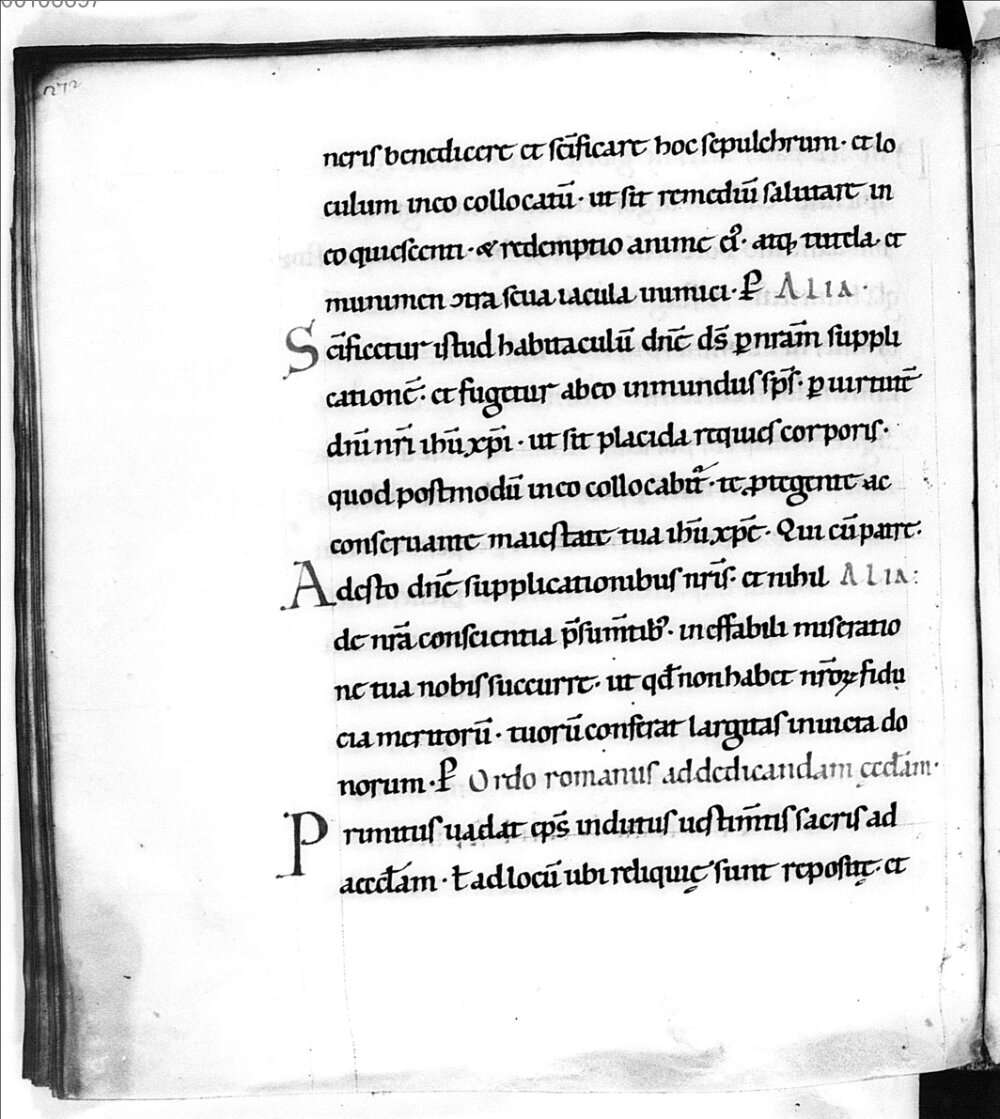 272
neris benedicere et sc̄ificare hoc sepulchrum · et lo
culum in eo collocatū · ut sit remediū salutare in
eo quiescenti · & redemptio anime ei᷒ · atq, tutela · et
munimen ɔtra seua iacula inimici · P̄ ALIA ·
Sc̄ificetur istud habitaculū dn̄e ds̄ ꝑ nrām suppli
cationē · et fugetur ab eo inmundus sp̄s · ꝑ uirtutē
dn̄i nr̄i ihū xp̄i · ut sit placida requies corporis ·
quod postmodū in eo collocabit᷑ · te ꝓtegente ac
conseruante maiestate tua ihū xp̄e · Qui cū patre :
Adesto dn̄e supplicationibus nrīs · et nihil ALIA :
de nrā conscientia p̄sum̄tib᷒ · ineffabili miseratio
ne tua nobis succurre · ut qđ non habet nr̄oꝝ fidu
cia meritorū · tuorū conferat largitas inuicta do
norum · P̄ Ordo romanus ad dedicandam ęccłam ·
Primitus uadat ep̄s indutus uestim̄tis sacris ad
aeccłam · ł ad locū ubi reliquię sunt repositę · et